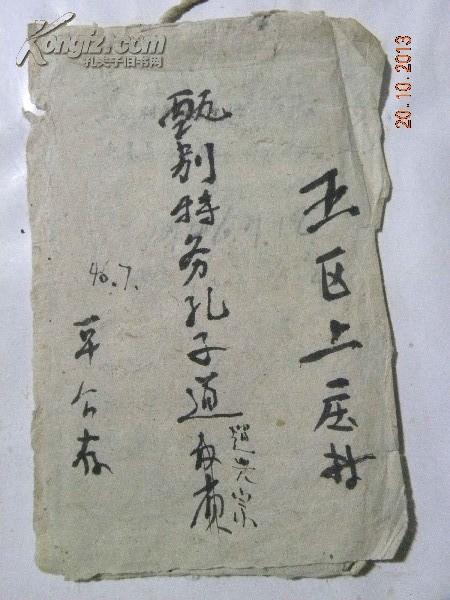 Kongfz.com
孔夫子旧书网
20-10-2013
五区上庄村
甄别特务孔子道
道光宗
46.7.
平公存